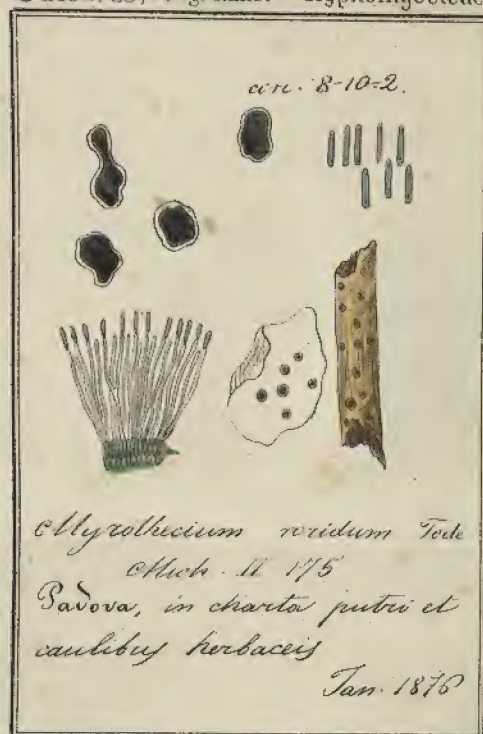 circ. 8-10=2.
Myrothecium roridum Tode
Mich. II 175
Padova, in charta putri et
caulibus herbaceis
Jan. 1876